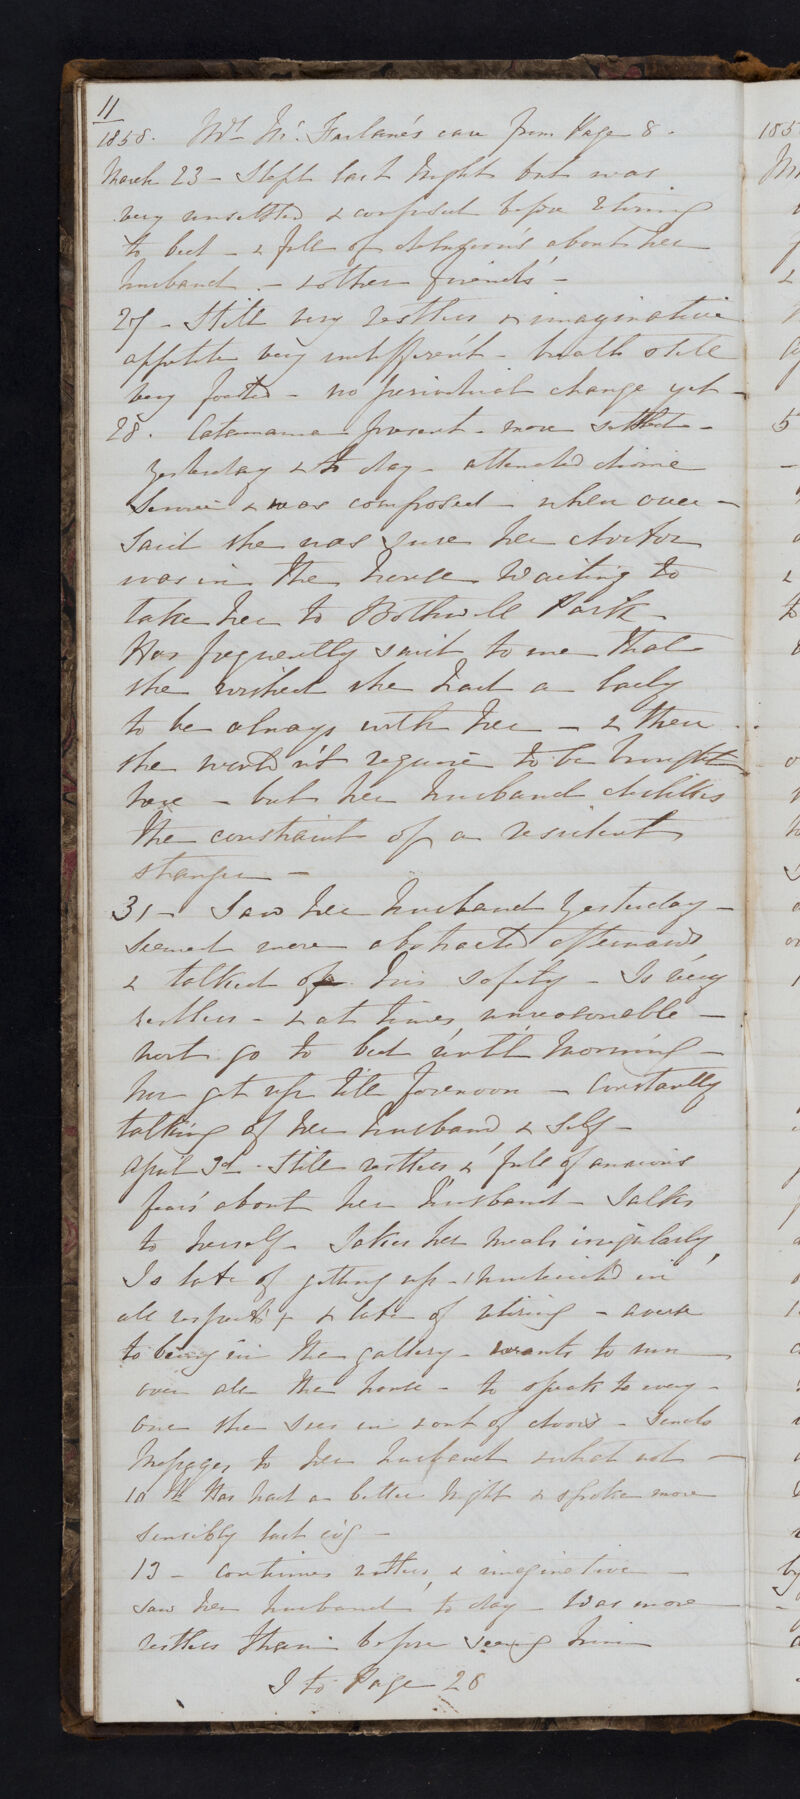 11
1858. Mrs Mc. Farlane's case from Page 8.
March 23 - Slept last night but was
very unsettled & confused before retiring
to bed - & full of delusions about her
husband - & other friends -
27 - Still very restless & imaginative
appetite very indifferent - breath still
very foetid - no periodical change yet -
28. Catamania present - more settled -
yesterday & to day - attended divine
Service & was composed - when over -
said she was sure her doctor
was in the house waiting to
take her to Bothwell Park
Has frequently said to me that
she wished she had a lady
to be always with her - & then
she would n't require to be brought
here - but her husband dislikes
the constraint of a resident
stranger -
31 - Saw her husband yesterday -
seemed more abstracted afterwards
& talked of his safety - Is very
restless - & at times unreasonable -
wont go to bed until morning -
nor get up till forenoon - Constantly
talking of her husband & self -
April 3d. Still restless & full of anxious
fears about her husband - Talks
to herself - Takes her meals irregularly,
Is late of getting up - in
all respects & late of retiring - averse
to being in the gallery - wants to run
over all the house - to speak to every -
one she sees in & out of doors - sends
messages to her husband & what not -
10th Has had a better night & spoke more
sensibly last evg -
13 - Continues restless & imaginative -
saw her husband to day - Was more
restless than before seeing him
T to Page 26
185